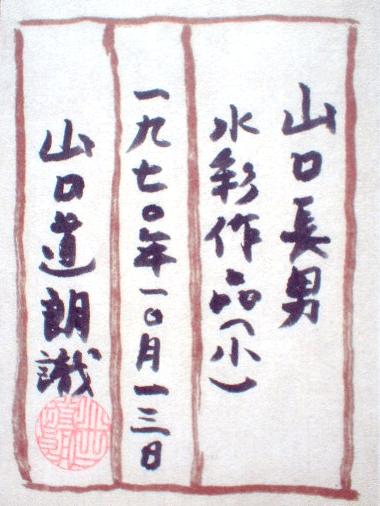 山口長男
水彩作品(小)
一九七〇年一〇月一三日
山口道朗識